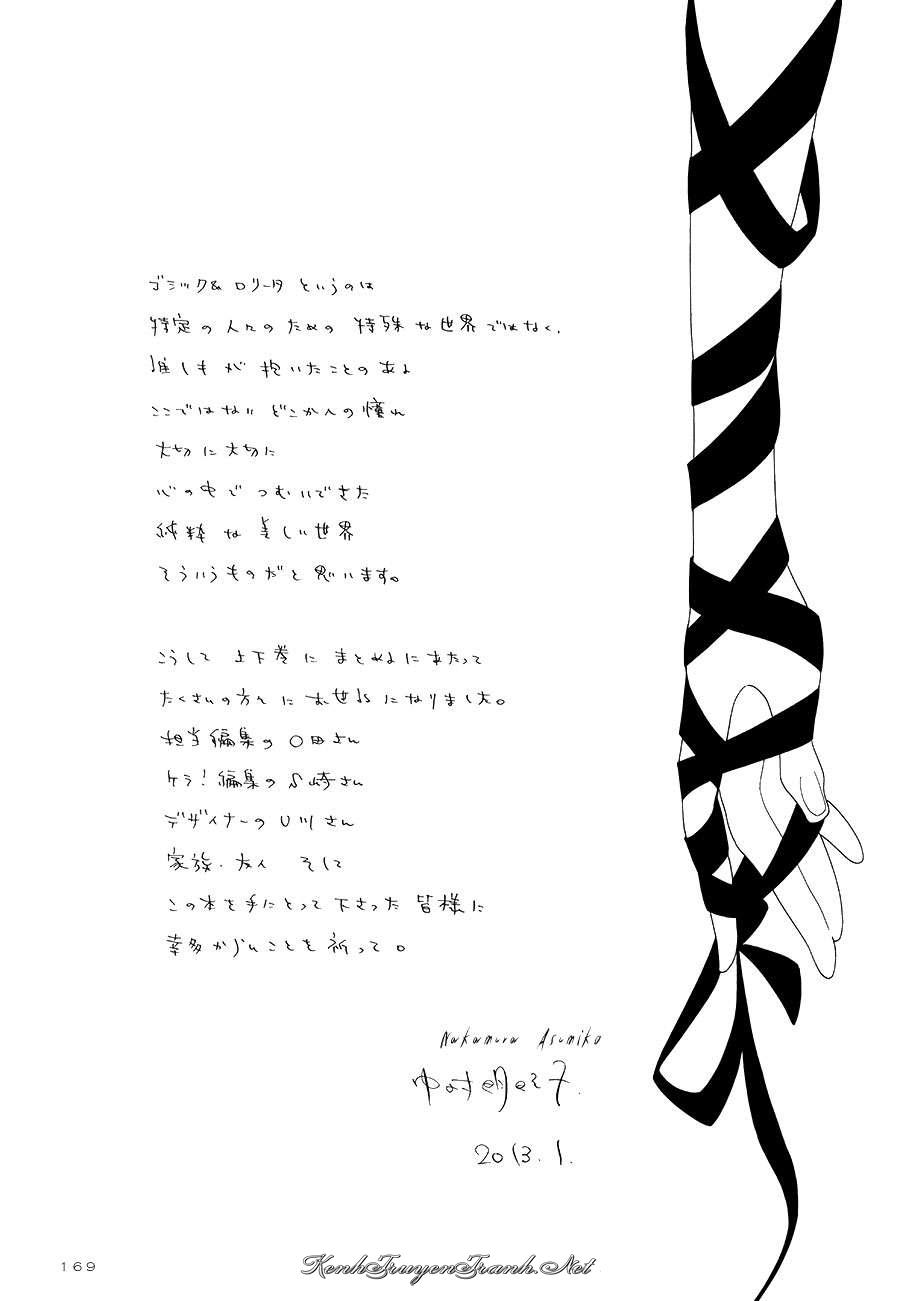 ゴシック&ロリータ というのは
特定の人々のための 特殊な世界ではなく、
誰しもが 抱いたことのある
ここではない どこかへの憧れ
大切に大切に
心の中で つむいできた
純粋な美しい世界
そういうものだと思います。
こうして 上下巻に まとめるにあたって
たくさんの方々に お世話になりました。
担当編集の○田さん
ケラ!編集の 崎さん
デザイナーのU川さん
家族・友人 そして
この本を手にとって下さった皆様に
幸多からんことを祈って。
Nakamura Asumiko
中村明日美子.
2013.1.
169
KenhTruyenTranh.Net